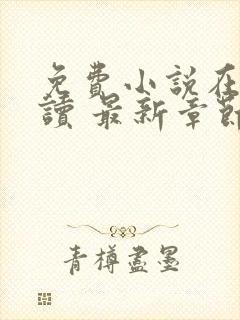 免費小說在
讀 最新章節
青樽盡墨